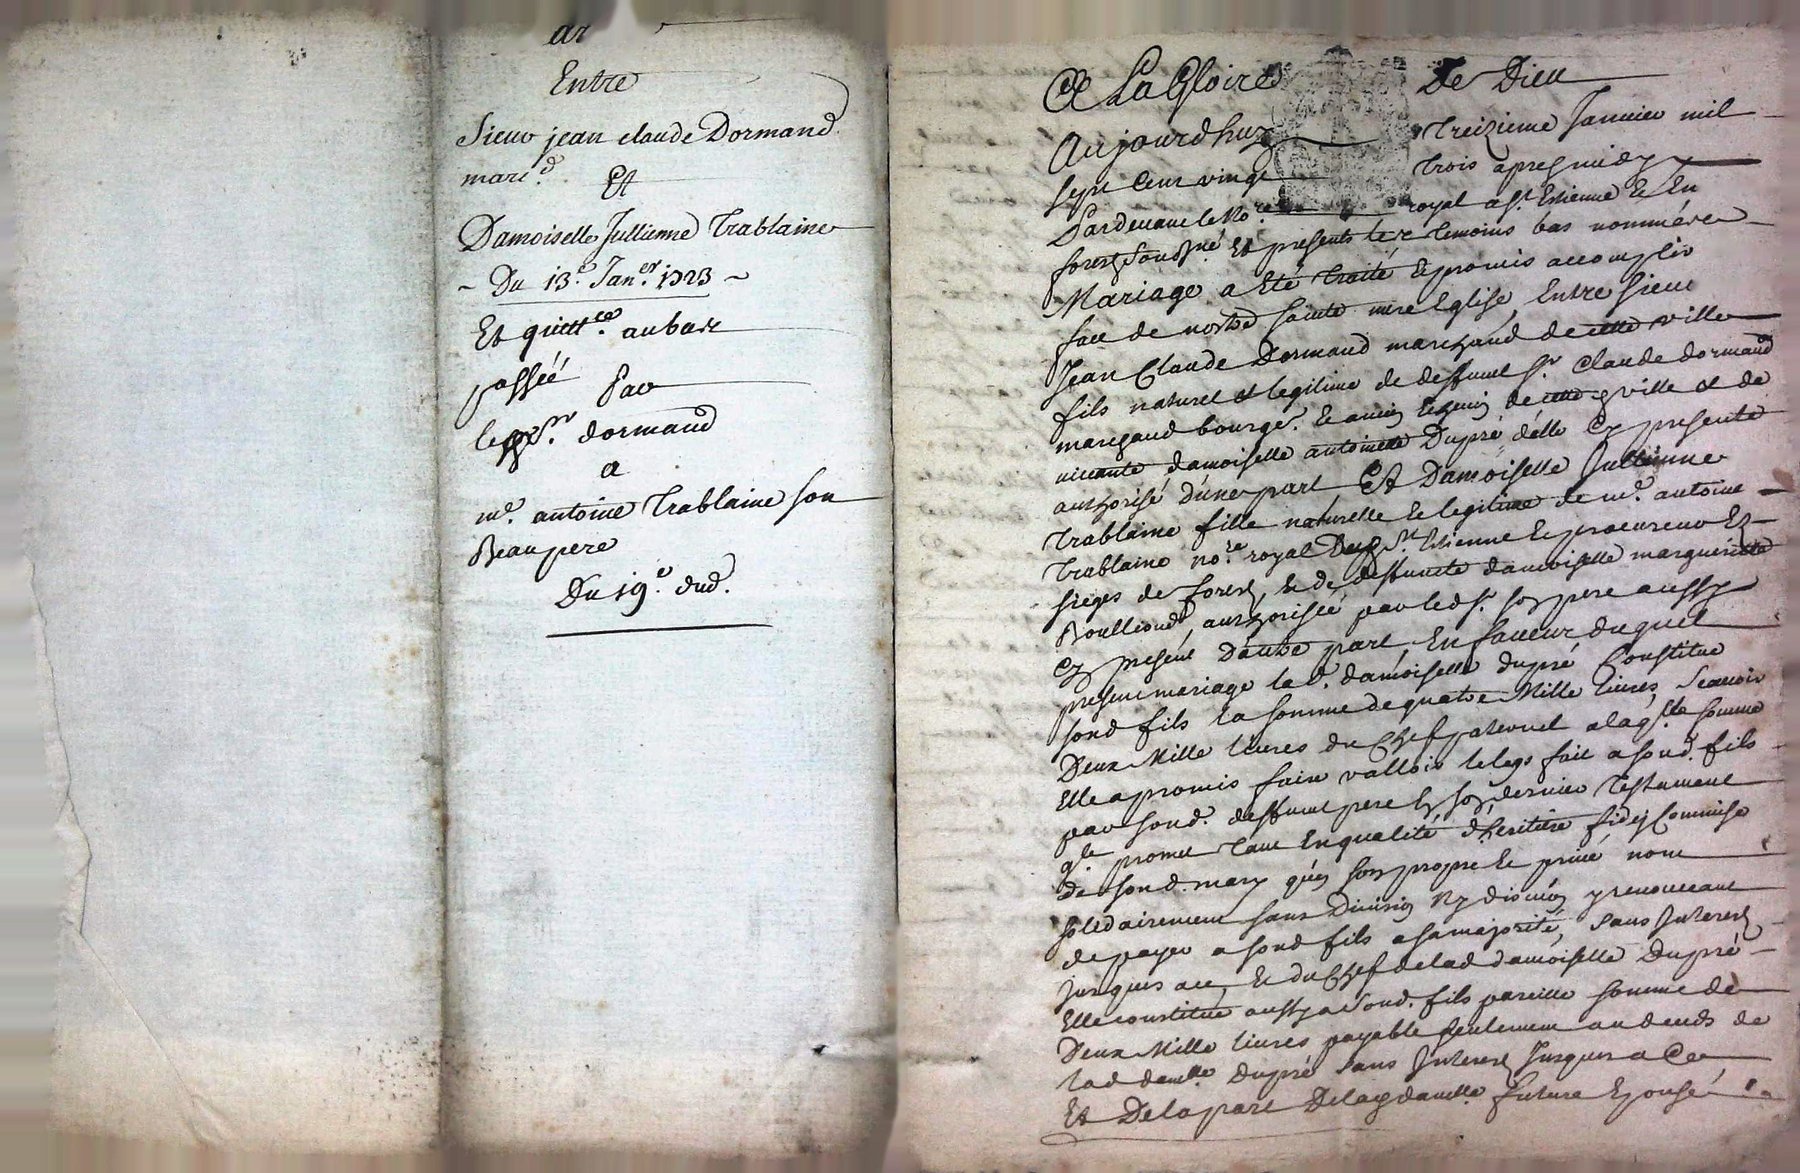 ar
Entre
Sieur jean claude Dormand
marc.d
Et
Damoiselle Jullienne Trablaine
~ Du 13.e Jan.er 1723 ~
Et quitt.ce au bas
passéé
Par
led. S.r dormand
a
m.e antoine Trablaine son
Beaupere
Du 19.e dud.
A La Gloire De Dieu
Aujourdhuy treizieme Janvier mil
sept cent vingt trois apres midy
Pardevant le No.re royal a S.t Estienne Et En
forest sousné Et presents les temoins bas nommés
Mariage a Eté traité Et promis accomplir
face de nostre sainte mere Eglise, Entre sieur
Jean Claude Dormand marchand de cette ville
fils naturel et legitime de deffunt S.r Claude dormand
marchand bourg.s Et ancien Echevin de cette ville et de
vivante damoiselle antoinette Dupré d'elle Cy presente
authorisé d'une part Et Damoiselle Jullienne
Trablaine fille naturelle Et legitime de m.e antoine
Trablaine no.re royal S.t Estienne Et procureur Ez
sieges de forest, Et de deffuncte damoiselle marguerite
Boullioud, authorisée par led. S.r son pere aussy
Cy present D'autre part, En faveur duquel
present mariage la d. damoiselle dupré Constitue
sond fils la somme de quatre Mille livres, Scavoir
Deux Mille livres du Chef paternel a laq.lle somme
Elle a promis faire valloir le legs fait a sond. fils
par sond. deffunt pere En son dernier Testament
q.le promet tant En qualité d'heritiere fideicommise
de sond. mary qu'en son propre Et privé nom
solidairement sans Division Ny discution y renonceant
de payer a sond fils a sa majorité, sans Interest
jusques a ce, Et du Chef de lad damoiselle Dupré
Elle constitue aussy a sond. fils pareille somme de
Deux Mille livres payable seulement au deceds de
lad dam.lle Dupré sans Interest Jusques a Ce
Et De la part De lad dam.lle future Epouse